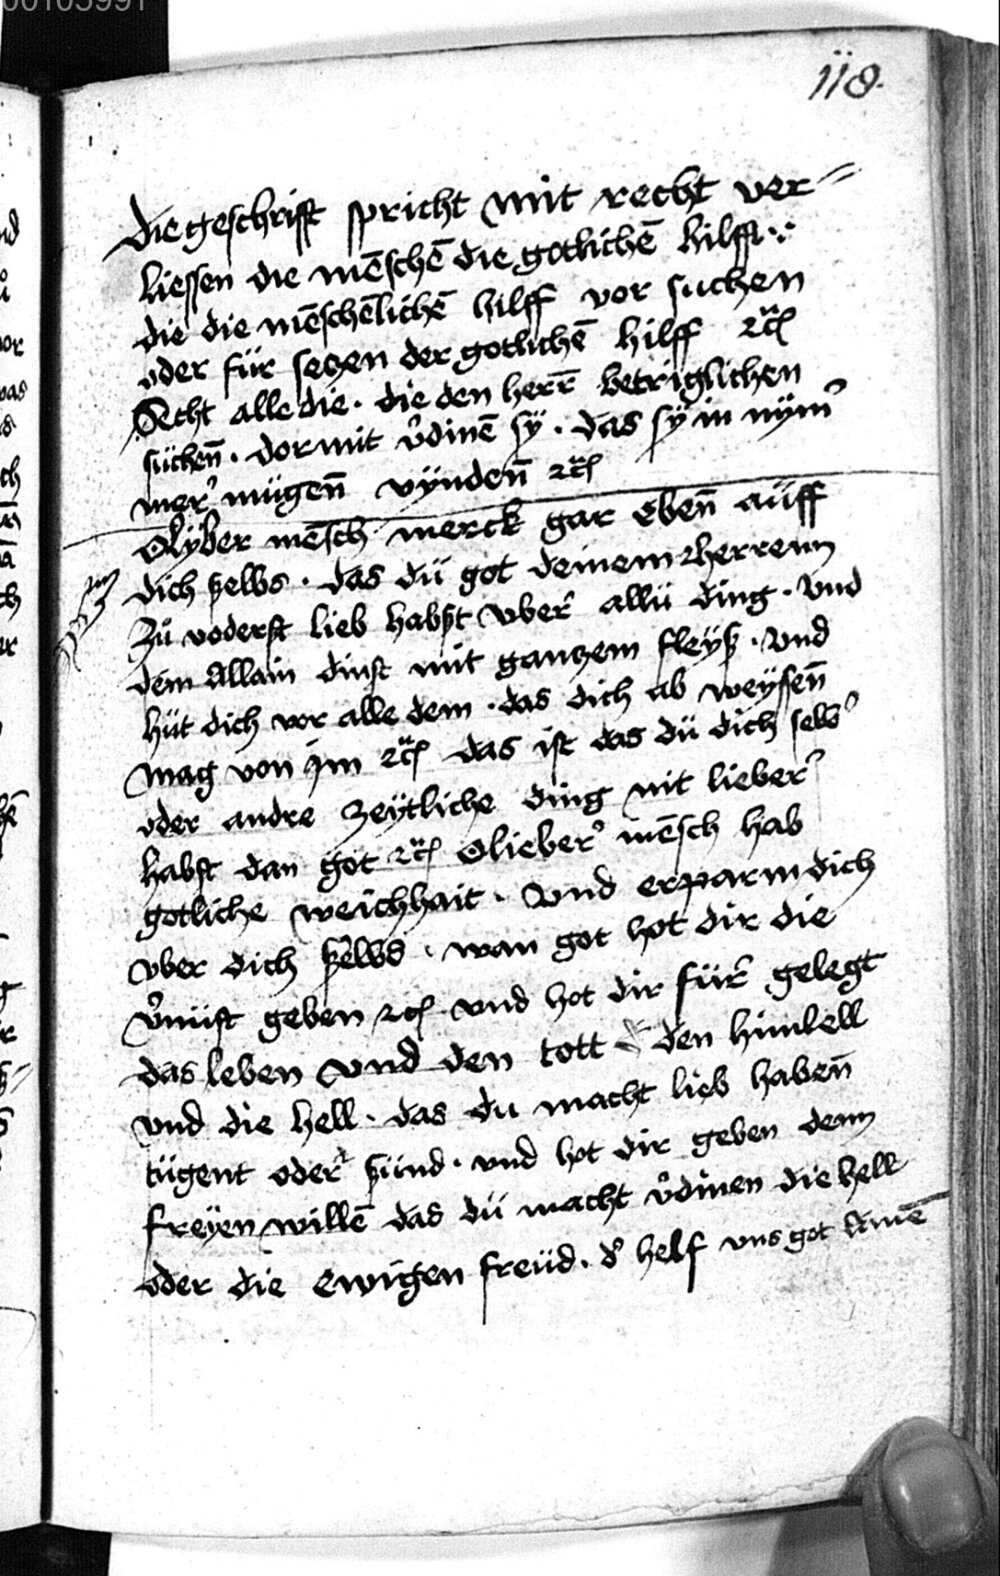 00105991
118.
die geschrifft spricht mit recht ver=
liessen die mēschē die gotlichē hilff
die die mēschēlichē hilff vor suchen
oder für seczen der gotlichē hilff ꝛc̃
Secht alle die · die den herr̄ betriglichen
süchen̄ · dor mit v̉dinē sÿ · das sÿ in nÿm̉
mer̉ mügen̄ vÿnden̄ ꝛc̃
O lÿber mēsch merck gar eben̄ aüff
dich selbs · das dü got deinem herrenn
Zů voderst lieb habst vber̉ allü ding · vnd
dem allain dinst mit ganczem fleÿß · vnd
hüt dich vor alle dem · das dich ab weÿsen̄
mag von jm ꝛc̃ das ist das dü dich selbs̉
oder andre zeÿtliche ding nit lieber̉
habst dan got ꝛc̃ O lieber̉ mēsch hab
gotliche weichhait · Vnd erparm dich
vber dich selbs · wan got hot dir die
v̉nüfft geben ꝛc̃ vnd hot dir für̉ gelegt
das leben vnd den tott den himlell
vnd die hell · das du macht lieb haben̄
tügent oder̉ sünd · vnd hot dir geben denn
freÿen willē das dü macht v̉dinen die hell
oder die ewigen freüd · d̉ helf vns got Amē